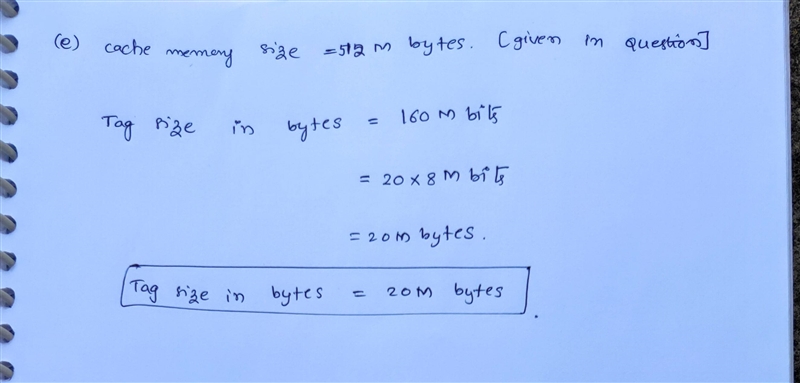 (e) cache memory size = 512 M bytes. [given in question]
Tag size in bytes = 160 M bits
= 20 x 8 M bits
= 20 M bytes.
Tag size in bytes = 20M bytes.